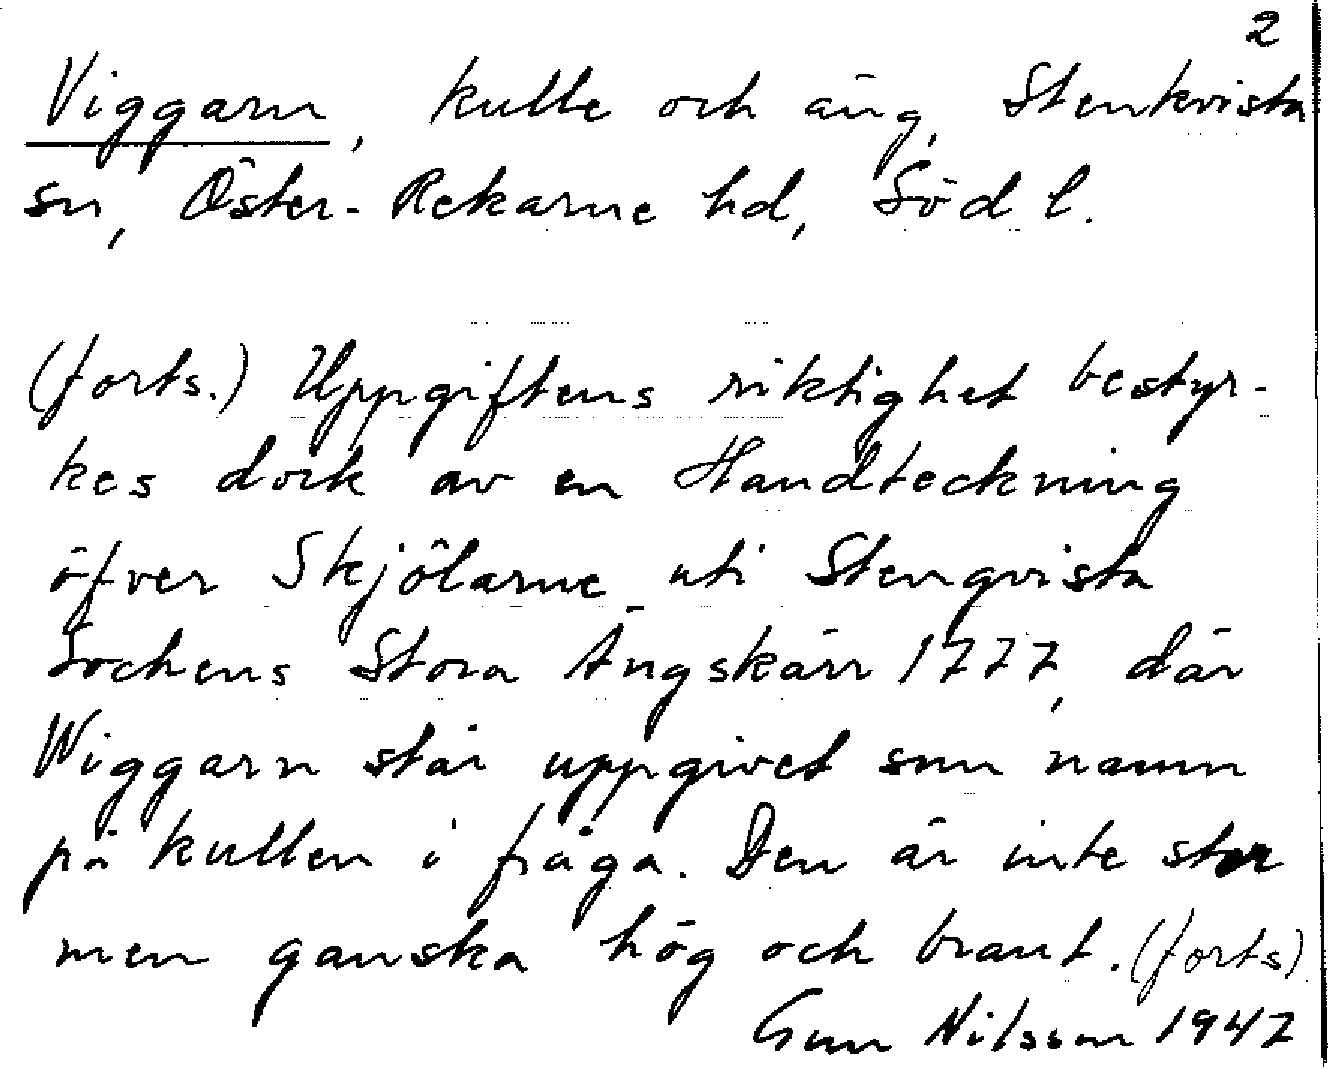 2
Viggarn, kulle och äng, Stenkvista
sn, Öster-Rekarne hd, Söd l.
(forts.) Uppgiftens riktighet bestyr-
kes dock av en Handteckning
öfver Skjölarne uti Stenqvista
Sochens Stora Ängskärr 1777, där
Wiggarn står uppgivet som namn
på kullen i fråga. Den är inte stor
men ganska hög och brant. (forts)
Gun Nilsson 1947